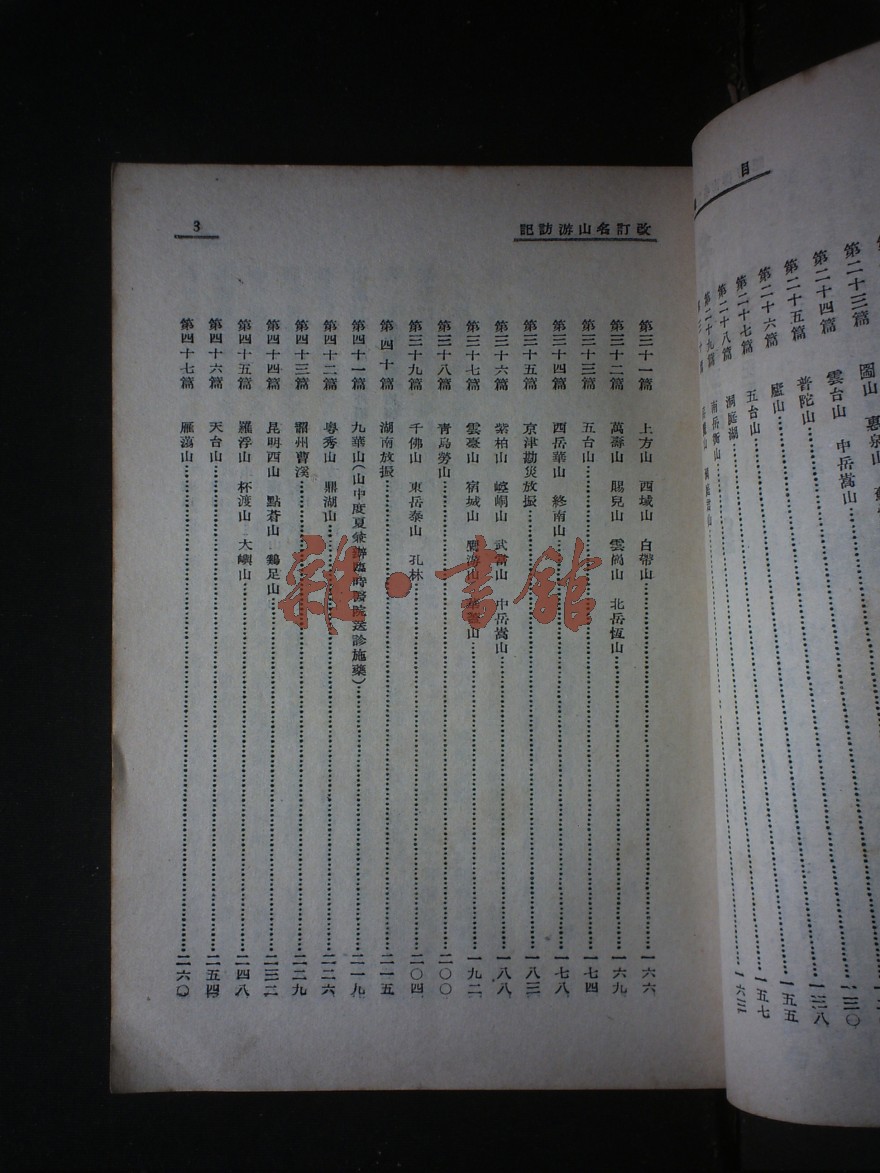 目
第二十三篇
圌山 惠泉山
第二十四篇 雲台山 中岳嵩山 一三〇
第二十五篇 普陀山 一三八
第二十六篇 廬山 一五五
第二十七篇 五台山 一五七
第二十八篇 洞庭湖 一六三
第二十九篇 南岳衡山
改訂名山游訪記
3
第三十一篇 上方山 西域山 白帶山 一六六
第三十二篇 萬壽山 賜兒山 雲崗山 北岳恆山 一六九
第三十三篇 五台山 一七四
第三十四篇 西岳華山 終南山 一七八
第三十五篇 京津勘災放振 一八三
第三十六篇 紫柏山 崆峒山 武當山 中岳嵩山 一八八
第三十七篇 雲臺山 宿城山 山 山 一九二
第三十八篇 青島勞山 二〇〇
第三十九篇 千佛山 東岳泰山 孔林 二〇四
第四十篇 湖南放振 二一五
第四十一篇 九華山(山中度夏兼辦臨時醫院送診施藥) 二一九
第四十二篇 粵秀山 鼎湖山 二二六
第四十三篇 韶州曹溪 二二九
第四十四篇 昆明西山 點蒼山 鷄足山 二三二
第四十五篇 羅浮山 杯渡山 大嶼山 二四八
第四十六篇 天台山 二五四
第四十七篇 雁蕩山 二六〇
雜·書館